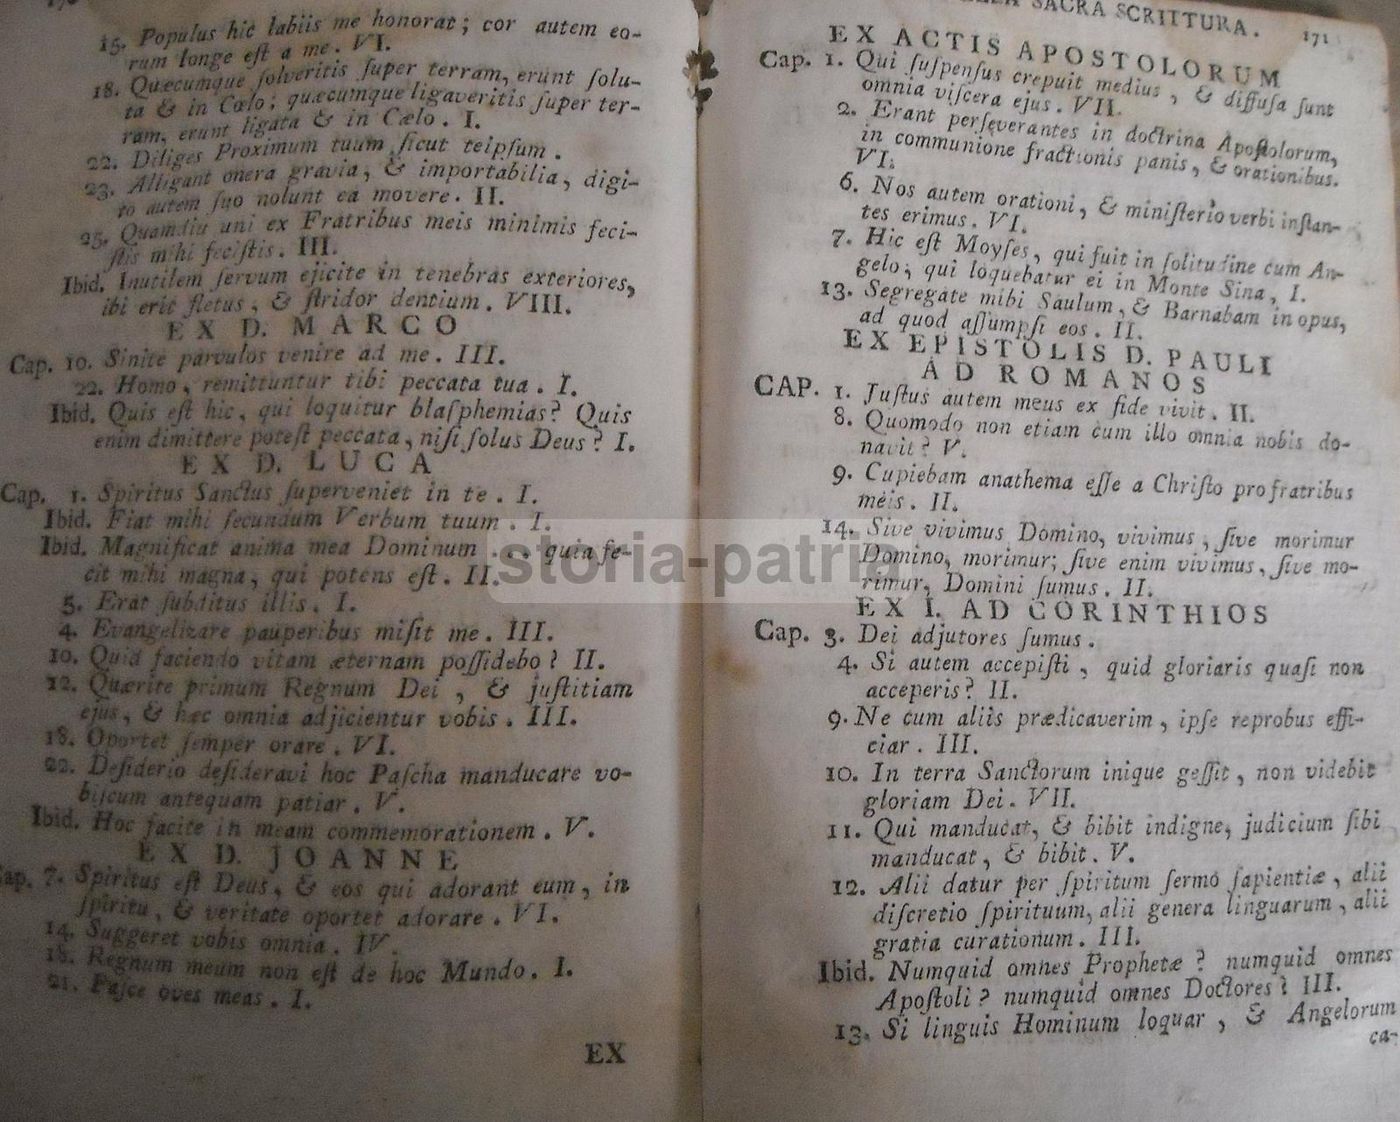 15. Populus hic labiis me honorat; cor autem eo-
rum longe eſt a me. VI.
18. Quæcumque ſolveritis ſuper terram, erunt ſolu-
ta & in Cœlo; quæcumque ligaveritis ſuper ter-
ram, erunt ligata & in Cælo. I.
22. Diliges Proximum tuum ſicut teipſum.
23. Alligant onera gravia, & importabilia, digi-
to autem ſuo nolunt ea movere. II.
25. Quamdiu uni ex Fratribus meis minimis feci-
ſtis mihi feciſtis. III.
Ibid. Inutilem ſervum ejicite in tenebras exteriores,
ibi erit fletus, & ſtridor dentium. VIII.
EX D. MARCO
Cap. 10. Sinite parvulos venire ad me. III.
22. Homo, remittuntur tibi peccata tua. I.
Ibid. Quis eſt hic, qui loquitur blaſphemias? Quis
enim dimittere poteſt peccata, niſi ſolus Deus? I.
EX D. LUCA
Cap. 1. Spiritus Sanctus ſuperveniet in te. I.
Ibid. Fiat mihi ſecundum Verbum tuum. I.
Ibid. Magnificat anima mea Dominum ... quia fe-
cit mihi magna, qui potens eſt. II.
5. Erat ſubditus illis. I.
4. Evangelizare pauperibus miſit me. III.
10. Quid faciendo vitam æternam poſſidebo? II.
12. Quærite primum Regnum Dei, & juſtitiam
ejus, & hæc omnia adjicientur vobis. III.
18. Oportet ſemper orare. VI.
22. Deſiderio deſideravi hoc Paſcha manducare vo-
biſcum antequam patiar. V.
Ibid. Hoc facite in meam commemorationem. V.
EX D. JOANNE
Cap. 7. Spiritus eſt Deus, & eos qui adorant eum, in
ſpiritu, & veritate oportet adorare. VI.
14. Suggeret vobis omnia. IV.
18. Regnum meum non eſt de hoc Mundo. I.
21. Paſce oves meas. I.
EX
SACRA SCRITTURA. 171
EX ACTIS APOSTOLORUM
Cap. 1. Qui ſuſpenſus crepuit medius, & diffuſa ſunt
omnia viſcera ejus. VII.
2. Erant perſeverantes in doctrina Apoſtolorum,
in communione fractionis panis, & orationibus.
VI.
6. Nos autem orationi, & miniſterio verbi inſtan-
tes erimus. VI.
7. Hic eſt Moyſes, qui fuit in ſolitudine cum An-
gelo, qui loquebatur ei in Monte Sina, I.
13. Segregate mihi Saulum, & Barnabam in opus,
ad quod aſſumpſi eos. II.
EX EPISTOLIS D. PAULI
AD ROMANOS
CAP. 1. Juſtus autem meus ex fide vivit. II.
8. Quomodo non etiam cum illo omnia nobis do-
navit? V.
9. Cupiebam anathema eſſe a Chriſto pro fratribus
meis. II.
14. Sive vivimus Domino, vivimus, ſive morimur
Domino, morimur; ſive enim vivimus, ſive mo-
rimur, Domini ſumus. II.
EX I. AD CORINTHIOS
Cap. 3. Dei adjutores ſumus.
4. Si autem accepiſti, quid gloriaris quaſi non
acceperis? II.
9. Ne cum aliis prædicaverim, ipſe reprobus effi-
ciar. III.
10. In terra Sanctorum inique geſſit, non videbit
gloriam Dei. VII.
11. Qui manducat, & bibit indigne, judicium ſibi
manducat, & bibit. V.
12. Alii datur per ſpiritum ſermo ſapientiæ, alii
diſcretio ſpirituum, alii genera linguarum, alii
gratia curationum. III.
Ibid. Numquid omnes Prophetæ? numquid omnes
Apoſtoli? numquid omnes Doctores? III.
13. Si linguis Hominum loquar, & Angelorum
ca-
storia-patria